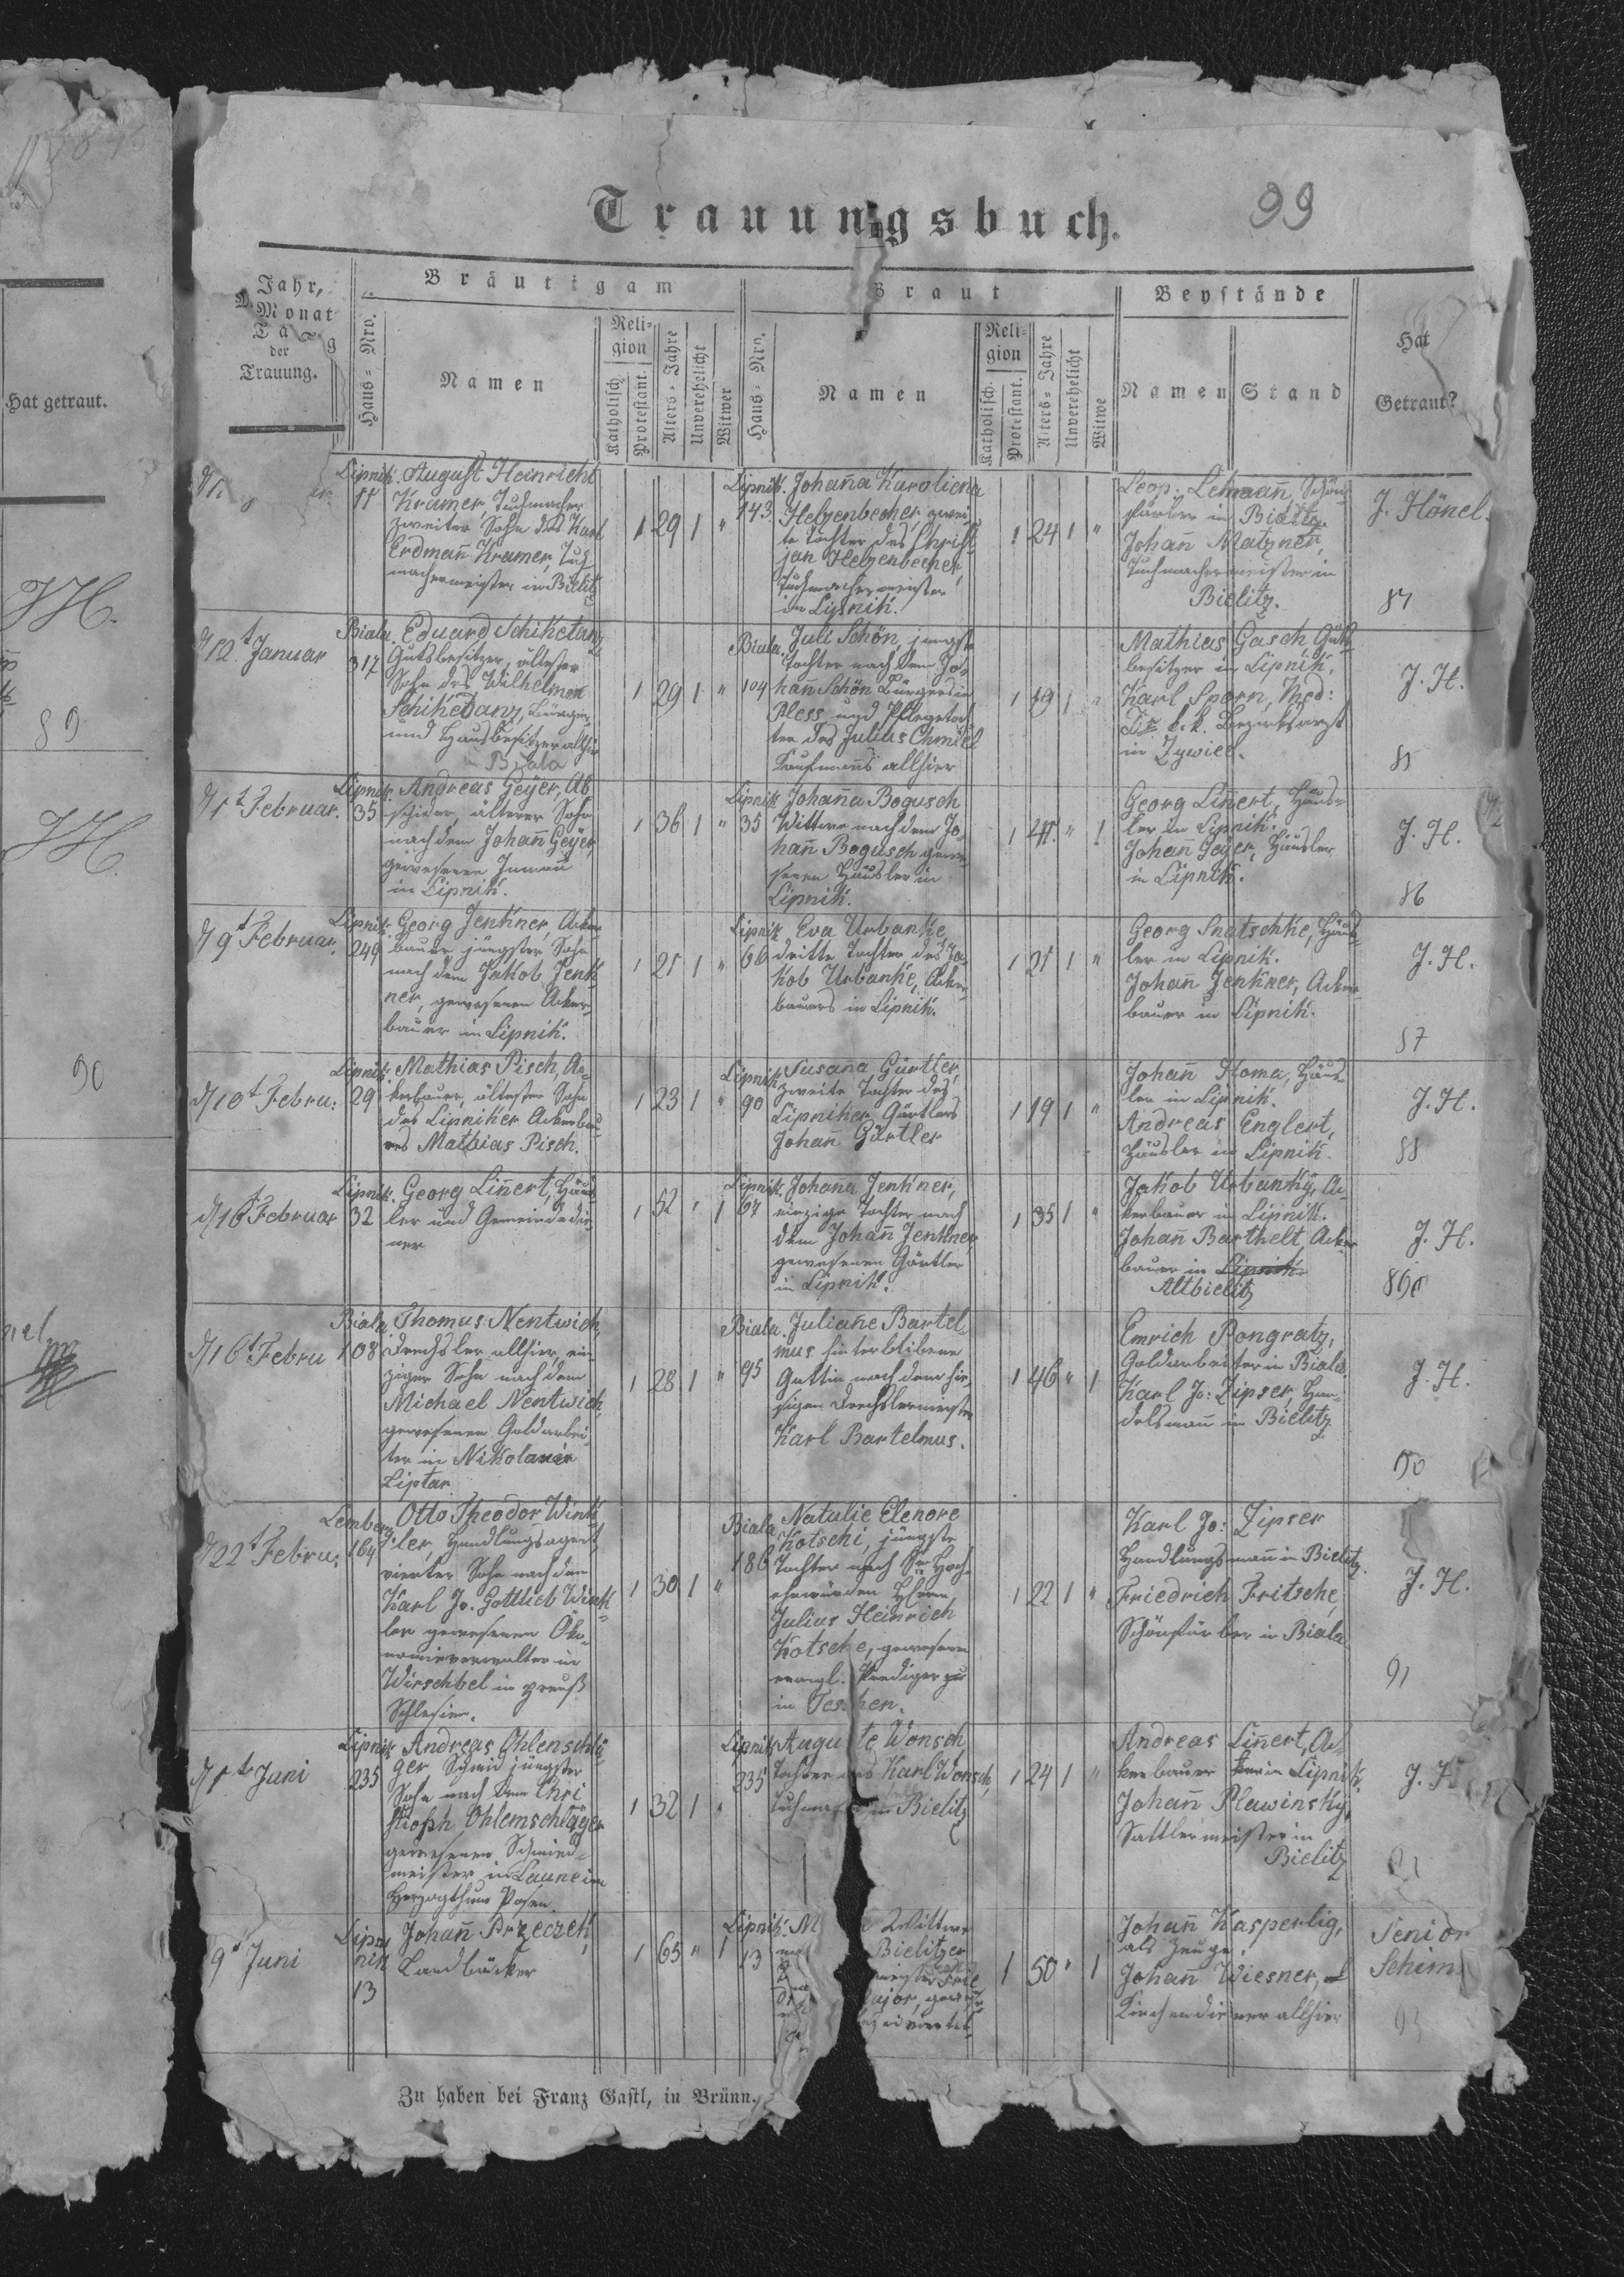 Trauungsbuch.
99
Jahr, Monat Tag der Trauung.
Haus-Nro.
Bräutigam
Namen
Religion
Katholisch
Protestant.
Alters-Jahre
Unverehelicht
Witwer
Haus-Nro.
Braut
Namen
Religion
Katholisch
Protestant.
Alters-Jahre
Unverehelicht
Witwe
Beystände
Namen Stand
Hat
Getraut?
Hat getraut.
JH.
89
JH.
90
Lipnik.
August Heinrich
Kramer Tuchmacher
zweiter Sohn des Karl
Erdmañ Kramer, Tuch
machermeister in Bielitz
1 29 1 "
Lipnik.
143.
Johaña Karoliena
Helzenbecher, zwei
te Tochter des Christ
jan Helzenbecher
Tuchmachermeister
in Lipnik.
1 24 1 "
Leop. Lemañ, Schön
färber in Bielitz.
Johañ Matzner,
Tuchmachermeister in
Bielitz.
J. Hönel.
d/12t Januar
Biala.
317
Eduard Schiketanz
Gutsbesitzer, ältester
Sohn des Wilhelm
Schiketanz, Bürger
und Hausbesitzer allhier
Biala
1 29 1 "
Biala.
104
Juli Schön, jüngste
Tochter nach dem Jo
hañ Schön Bürgers in
Pless und Pflegetoch
ter des Julius Chmiel
Kaufmañs allhier
1 19 1 "
Mathias Gasch Guts
besitzer in Lipnik.
Karl Sporn, Med:
Dr. k.k. Bezirksarzt
in Zywiec.
J. H.
85
d/1t Februar.
Lipnik.
35
Andreas Geyer, Ab
schider, älterer Sohn
nach dem Johañ Geyer,
gewesenen Inmañ
in Lipnik.
1 36 1 "
Lipnik
35
Johaña Bogusch
Wittwe nach dem Jo
hañ Bogusch gewe
senen Häusler in
Lipnik.
1 41. " 1
Georg Liñert, Häus=
ler in Lipnik.
Johañ Geyer, Häusler
in Lipnik.
J. H.
86
d/9t Februar.
Lipnik.
249
Georg Jenkner, Acker
bauer jüngster Sohn
nach dem Jakob Jenk
ner, gewesenen Acker
bauer in Lipnik.
1 21 1 "
Lipnik
66
Eva Urbanke
dritte Tochter des Ja
kob Urbanke, Acker
bauers in Lipnik.
1 21 1 "
Georg Snatschke, Häus
ler in Lipnik.
Johañ Jenkner, Acker
bauer in Lipnik.
J. H.
87
d/10t Febru:
Lipnik.
29
Mathias Pisch, Ac
kerbauer, ältester Sohn
des Lipniker Ackerbau
ers Mathias Pisch.
1 23 1 "
Lipnik.
90
Susaña Gürtler,
zweite Tochter des
Lipniker Gärtlers
Johañ Gürtler
1 19 1 "
Johañ Homa, Häus
ler in Lipnik.
Andreas Englert,
Häusler in Lipnik.
J. H.
88
d/16t Februar
Lipnik.
32
Georg Liñert, Häus
ler und Gemeindedie
ner
1 52 " 1
Lipnik.
67
Johaña Jenkner,
einzige Tochter nach
dem Johañ Jenkner,
gewesenen Gärtler
in Lipnik.
1 35 1 "
Jakob Urbanky, Ac
kerbauer in Lipnik.
Johañ Barthelt, Acker
bauer in Lipnik
Altbielitz
J. H.
d/16t Febru
Biala.
108
Thomas Nentwich,
Drechsler allhier, ein
ziger Sohn nach dem
Michael Nentwich,
gewesenen Goldarbei
ter in Nikolaus
Liptar
1 28 1 "
Biala.
95
Juliañe Bartel
mus hinterblibene
Gattin nach dem hie
sigen Drechslermeister
Karl Bartelmus.
1 46 " 1
Emrich Pongratz,
Goldarbeiter in Biala.
Karl Jo: Zipser, Han
delsmañ in Bielitz
J. H.
90
d/22t Febru:
Lemberg
164
Otto Theodor Wink
ler, Handlungsagent,
vierter Sohn nach dem
Karl Jo. Gottlieb Wink
ler gewesenen Öko
nomieverwalter in
Wirschbel in preuß
Schlesien.
1 30 1 "
Biala
186
Natalie Elenore
Kotschi, jüngste
Tochter nach Sr Hoch
ehrwürden Herrn
Julius Heinrich
Kotsche, gewesenen
evangl. Prediger
in Teschen.
1 22 1 "
Karl Jo: Zipser
Handlungsmañ in Bielitz.
Friedrich Fritsche,
Schönfärber in Biala
J. H.
91
d/1t Juni
Lipnik
235
Andreas Ohlenschlä
ger Schmid jüngster
Sohn nach dem Chri
stioph Ohlemschläger
gewesenen Schmied
meister in Laune im
Herzogthum Posen.
1 32 1 "
Lipnik
235
Auguste Wonsch
Tochter des Karl Wonsch,
in Bielitz
1 24 1 "
Andreas Liñert, Ac
kerbauer in Lipnik.
Johañ Plawinsky,
Sattlermeister in
Bielitz
J. H
9t Juni
Lipnik
13
Johañ Przeczek,
Landbäcker
1 65 " 1
Lipnik.
13
M
Wittwe
Bielitzer
1 50 " 1
Johañ Kasperlig,
als Zeuge,
Johañ Wiesner,
Kirchendiener allhier
Senior
Schim
93
Zu haben bei Franz Gastl, in Brünn.